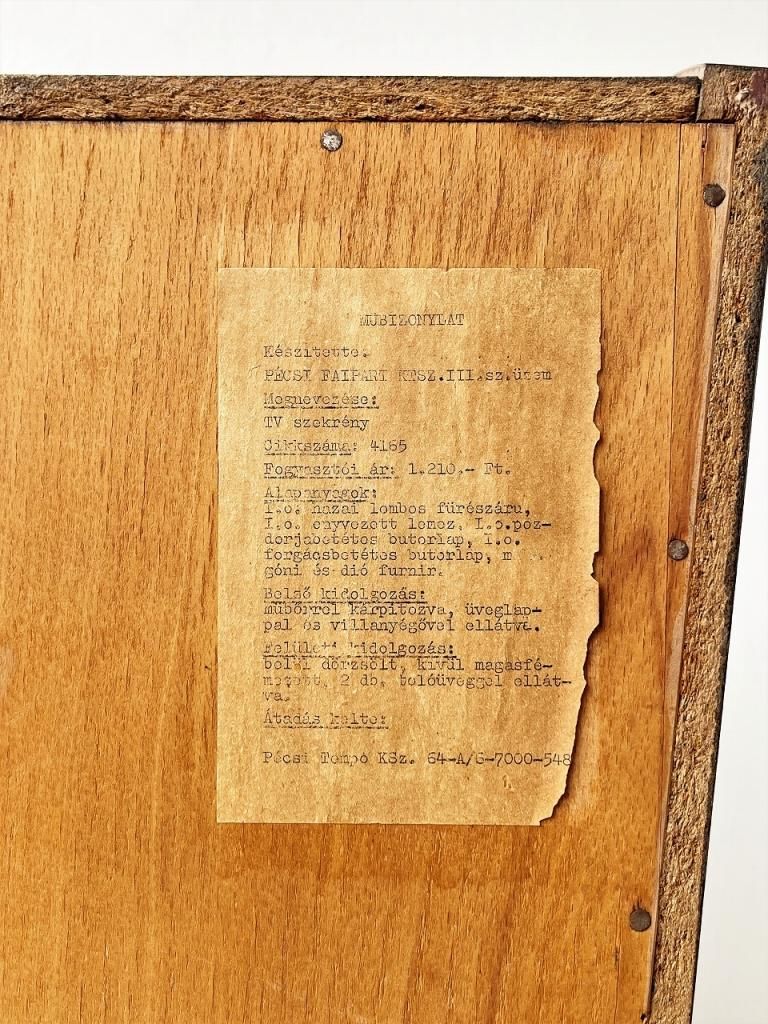 MŰBIZONYLAT
Készítette:
PÉCSI FAIPARI KTSZ.III.sz.üzem
Megnevezése:
TV szekrény
Cikkszáma: 4165
Fogyasztói ár: 1.210.- Ft.
Alapanyagok:
I.o. hazai lombos fűrészáru,
I.o. enyvezett lemez, I.o.poz-
dorjabetétes butorlap, I.o.
forgácsbetétes butorlap, m
góni és dió furnir.
Belső kidolgozás:
műbőrrel kárpitozva, üveglap-
pal és villanyégővel ellátva.
Felületi kidolgozás:
belül dörzsölt, kívül magasfé-
nezett, 2 db. tolóüveggel ellát-
va.
Átadás kelte:
Pécsi Tempó KSz. 64-A/6-7000-548